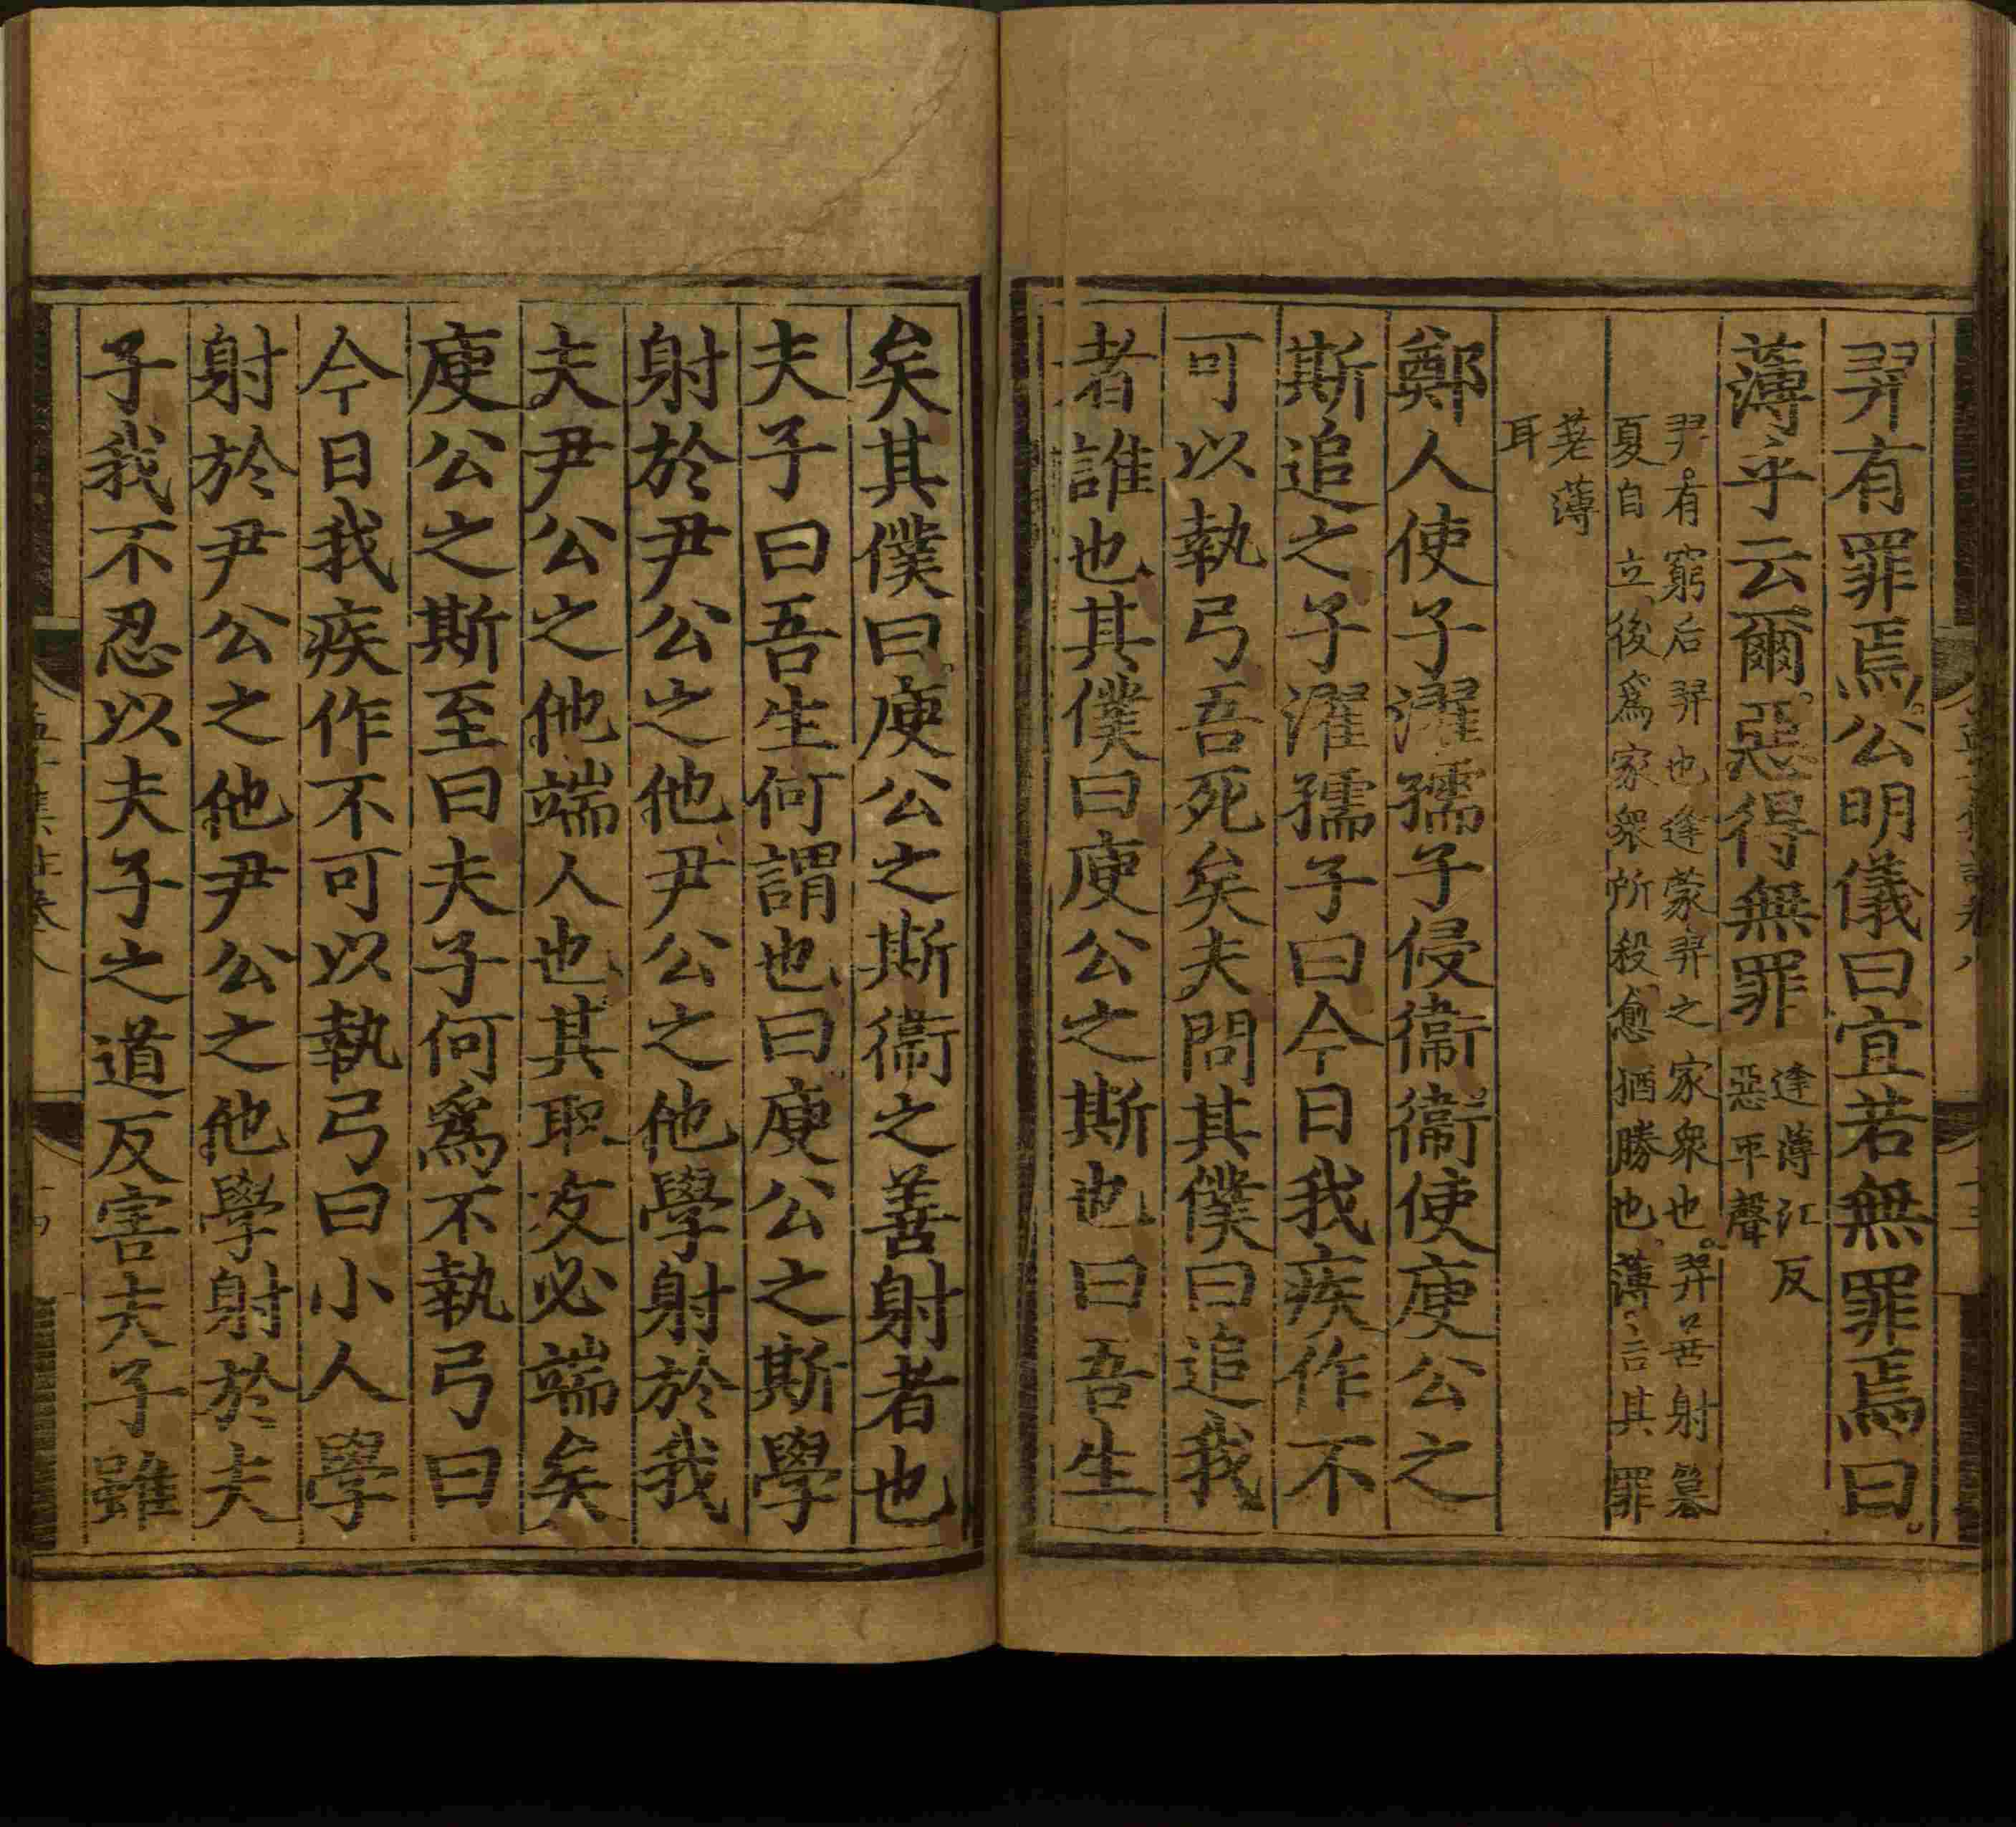 羿有罪焉公明儀曰宜若無罪焉曰
薄乎云爾惡得無罪
逢薄江反
惡平聲
羿有窮后羿也逢蒙羿之家衆也羿善射簒
夏自立後爲家衆所殺愈猶勝也薄言其罪
差薄
耳
鄭人使子濯孺子侵衞衞使庾公之
斯追之子濯孺子曰今日我疾作不
可以執弓吾死矣夫問其僕曰追我
者誰也其僕曰庾公之斯也曰吾生
矣其僕曰庾公之斯衞之善射者也
夫子曰吾生何謂也曰庾公之斯學
射於尹公之他尹公之他學射於我
夫尹公之他端人也其取友必端矣
庾公之斯至曰夫子何爲不執弓曰
今日我疾作不可以執弓曰小人學
射於尹公之他尹公之他學射於夫
子我不忍以夫子之道反害夫子雖